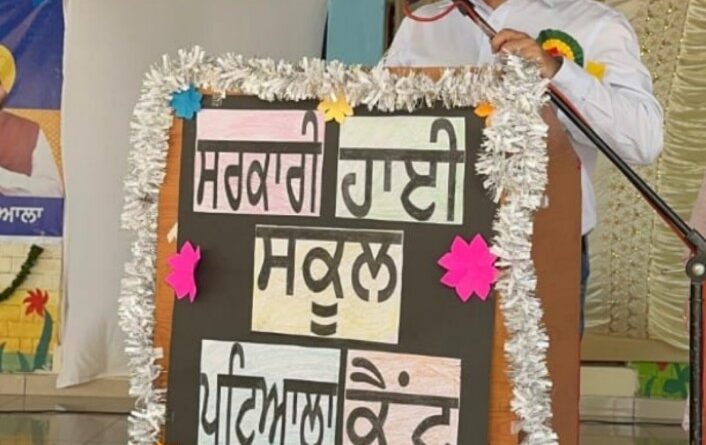 ਸਰਕਾਰੀ ਹਾਈ
ਸਕੂਲ
ਪਟਿਆਲਾ ਕੈਂਟ